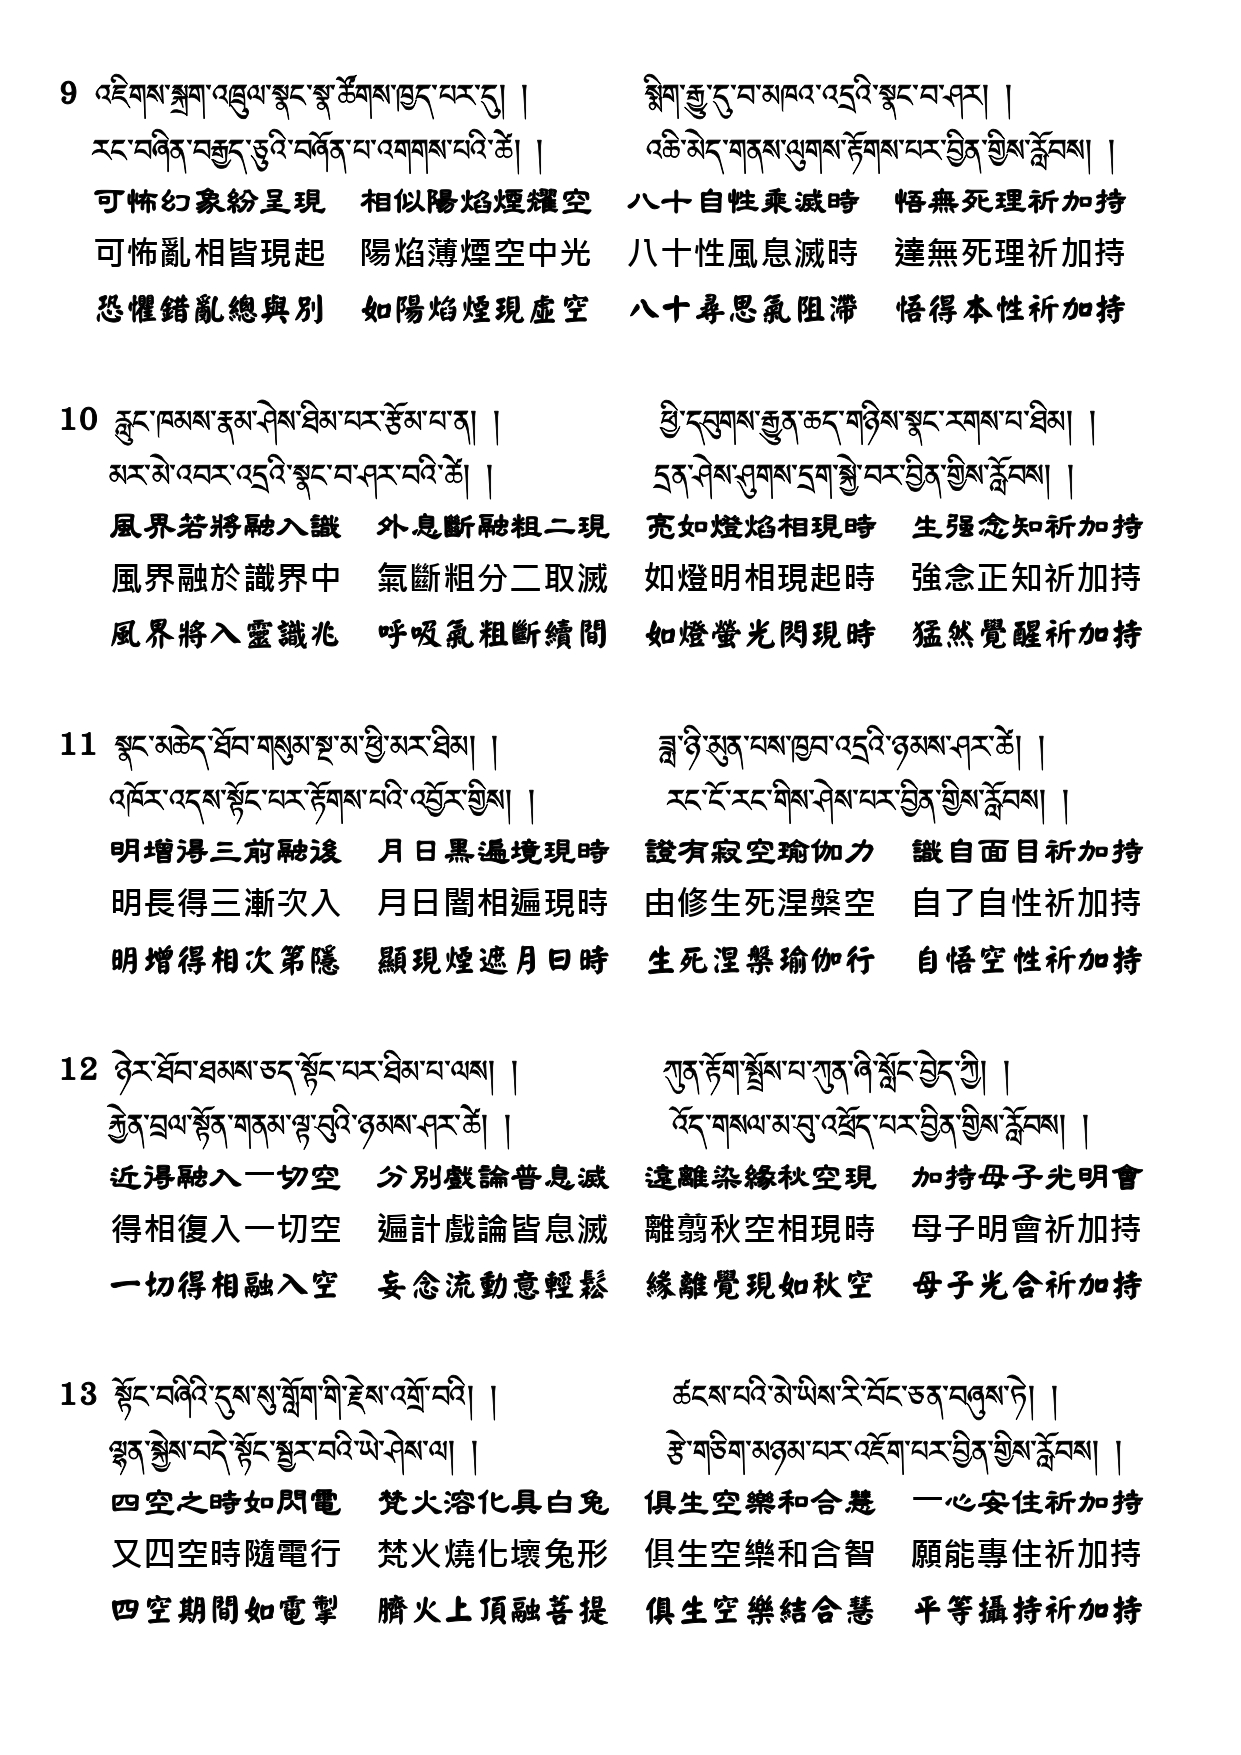 9 འཇིགས་སྐྲག་འཁྲུལ་སྣང་སྣ་ཚོགས་ཁྱད་པར་དུ། །  སྨིག་རྒྱུ་དུ་བ་མཁའ་འདྲའི་སྣང་བ་ཤར། །
རང་བཞིན་བརྒྱད་ཅུའི་བཞོན་པ་འགགས་པའི་ཚེ། །  འཆི་མེད་གནས་ལུགས་རྟོགས་པར་བྱིན་གྱིས་རློབས། །
可怖幻象紛呈現 相似陽焰煙耀空 八十自性乘滅時 悟無死理祈加持
可怖亂相皆現起 陽焰薄煙空中光 八十性風息滅時 達無死理祈加持
恐懼錯亂總與別 如陽焰煙現虛空 八十尋思氣阻滯 悟得本性祈加持
10 རླུང་ཁམས་རྣམ་ཤེས་ཐིམ་པར་རྩོམ་པ་ན། །  ཕྱི་དབུགས་རྒྱུན་ཆད་གཉིས་སྣང་རགས་པ་ཐིམ། །
མར་མེ་འབར་འདྲའི་སྣང་བ་ཤར་བའི་ཚེ། །  དྲན་ཤེས་ཤུགས་དྲག་སྐྱེ་བར་བྱིན་གྱིས་རློབས། །
風界若將融入識 外息斷融粗二現 亮如燈焰相現時 生强念知祈加持
風界融於識界中 氣斷粗分二取滅 如燈明相現起時 強念正知祈加持
風界將入靈識兆 呼吸氣粗斷續間 如燈螢光閃現時 猛然覺醒祈加持
11 སྣང་མཆེད་ཐོབ་གསུམ་སྔ་མ་ཕྱི་མར་ཐིམ། །  ཟླ་ཉི་མུན་པས་ཁྱབ་འདྲའི་ཉམས་ཤར་ཚེ། །
འཁོར་འདས་སྟོང་པར་རྟོགས་པའི་འབྱོར་གྱིས། །  རང་ངོ་རང་གིས་ཤེས་པར་བྱིན་གྱིས་རློབས། །
明增得三前融後 月日黑遍境現時 證有寂空瑜伽力 識自面目祈加持
明長得三漸次入 月日闇相遍現時 由修生死涅槃空 自了自性祈加持
明增得相次第隱 顯現煙遮月日時 生死涅槃瑜伽行 自悟空性祈加持
12 ཉེར་ཐོབ་ཐམས་ཅད་སྟོང་པར་ཐིམ་པ་ལས། །  ཀུན་རྟོག་སྤྲོས་པ་ཀུན་ཞི་སློང་བྱེད་ཀྱི། །
རྐྱེན་བྲལ་སྟོན་གནམ་ལྟ་བུའི་ཉམས་ཤར་ཚེ། །  འོད་གསལ་མ་བུ་འཕྲོད་པར་བྱིན་གྱིས་རློབས། །
近得融入一切空 分別戲論普息滅 遠離染緣秋空現 加持母子光明會
得相復入一切空 遍計戲論皆息滅 離翳秋空相現時 母子明會祈加持
一切得相融入空 妄念流動意輕鬆 緣離覺現如秋空 母子光合祈加持
13 སྟོང་བཞིའི་དུས་སུ་གློག་གི་རྗེས་འགྲོ་བའི། །  ཚངས་པའི་མེ་ཡིས་རི་བོང་ཅན་བཞུས་ཏེ། །
ལྷན་སྐྱེས་བདེ་སྟོང་སྦྱར་བའི་ཡེ་ཤེས་ལ། །  རྩེ་གཅིག་མཉམ་པར་འཇོག་པར་བྱིན་གྱིས་རློབས། །
四空之時如閃電 梵火溶化具白兔 俱生空樂和合慧 一心安住祈加持
又四空時隨電行 梵火燒化壞兔形 俱生空樂和合智 願能專住祈加持
四空期間如電掣 臍火上頂融菩提 俱生空樂結合慧 平等攝持祈加持